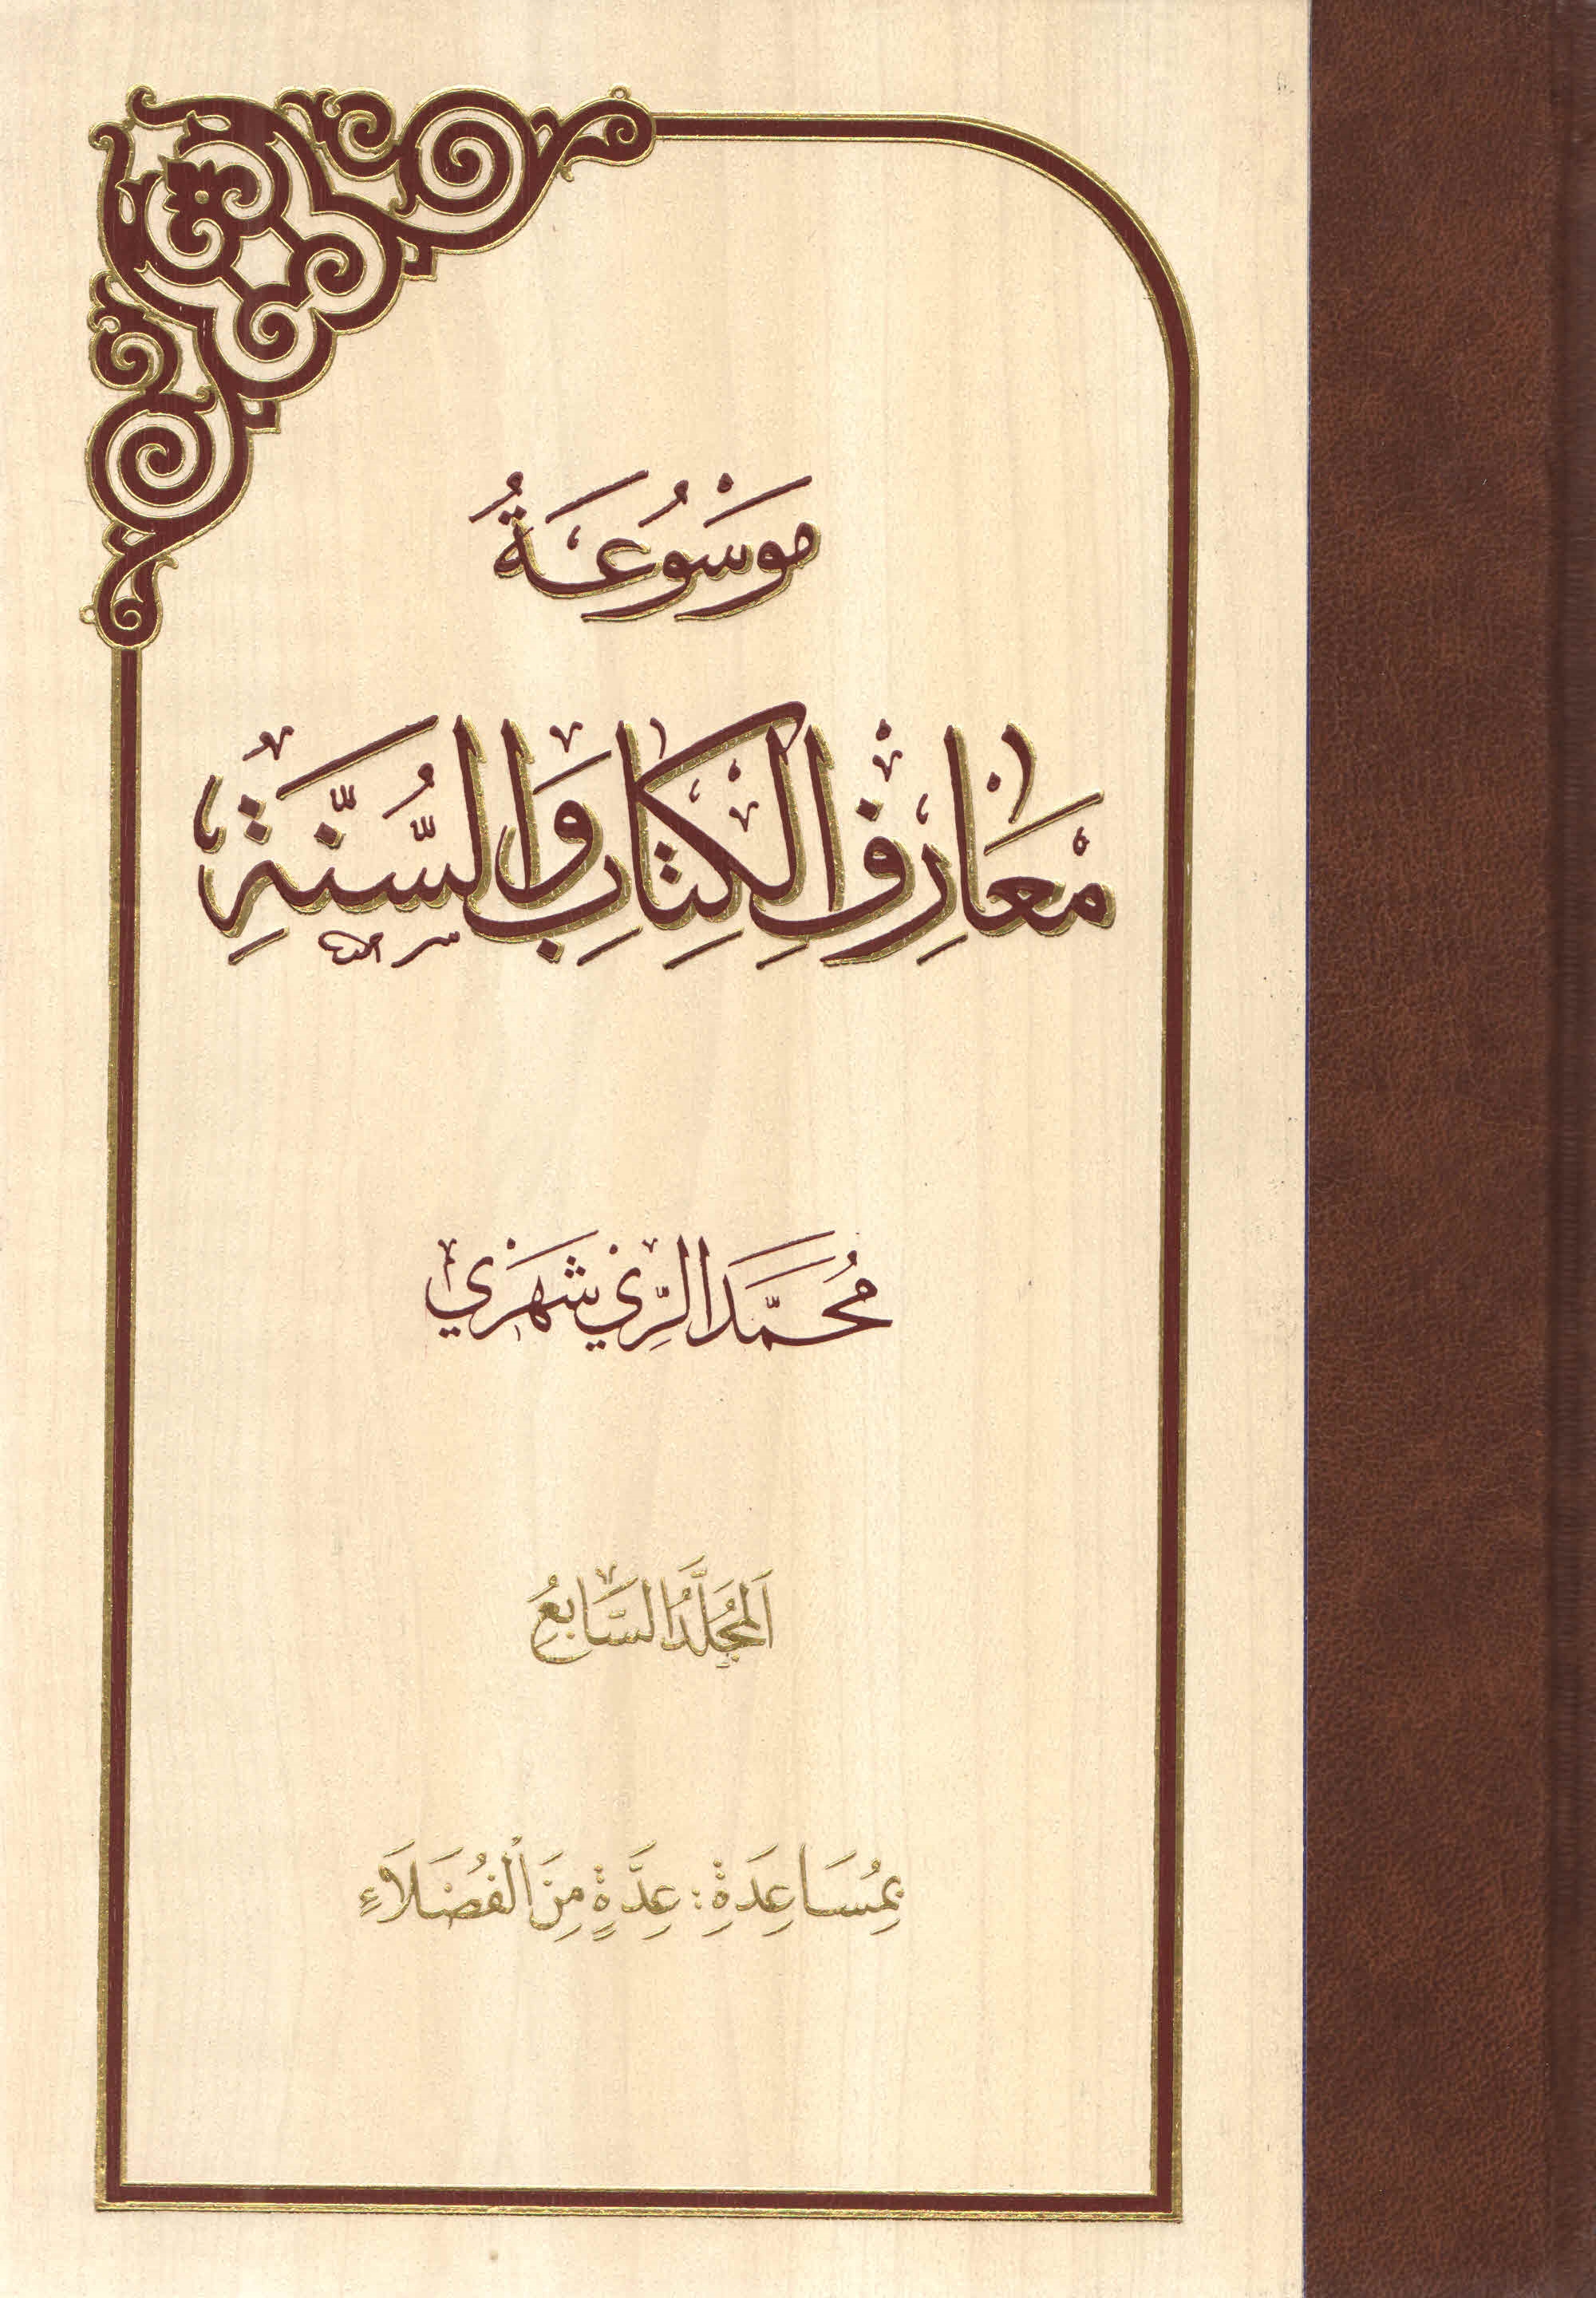 مَوْسُوعَةُ
مَعَارِفِ الْكِتَابِ وَالسُّنَّةِ
مُحَمَّدُ الرَّيْ شَهْرِيّ
اَلْمُجَلَّدُ السَّابِعُ
بِمُسَاعِدَةِ: عِدَّةٍ مِنَ الْفُضَلَاءِ